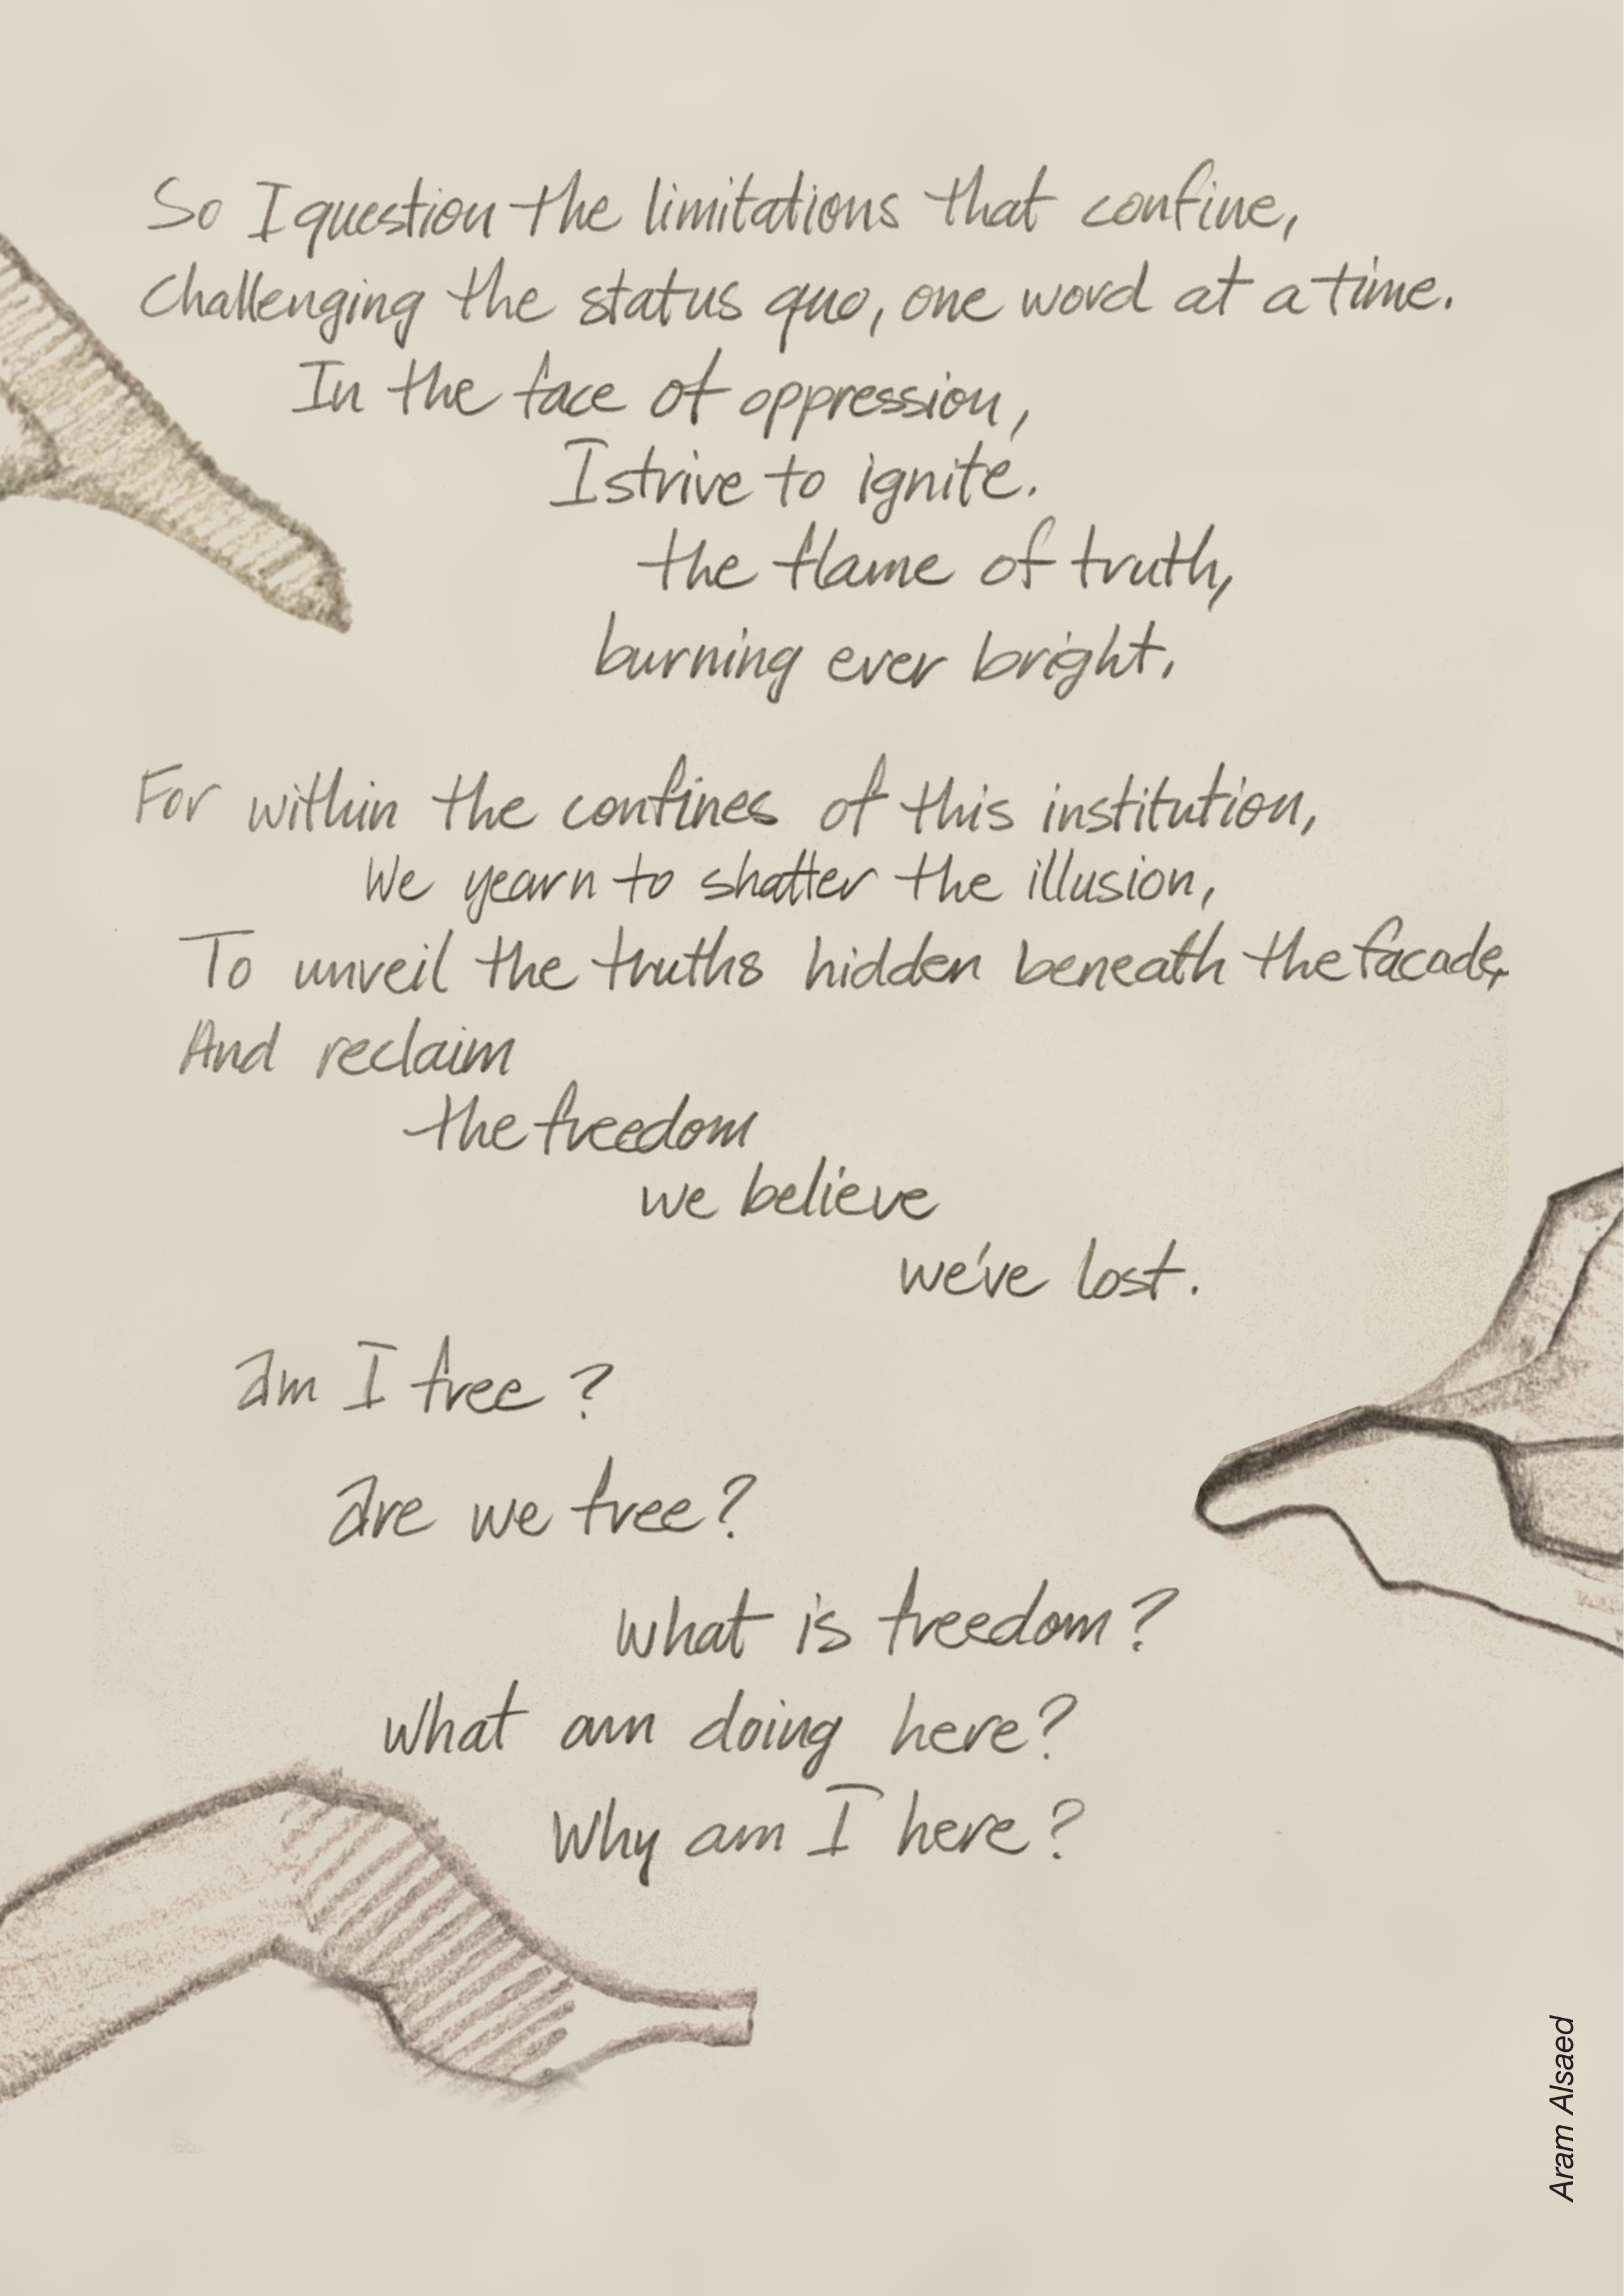 So I question the limitations that confine,
Challenging the status quo, one word at a time.
In the face of oppression,
I strive to ignite.
the flame of truth,
burning ever bright.
For within the confines of this institution,
We yearn to shatter the illusion,
To unveil the truths hidden beneath the facade,
And reclaim
the freedom
we believe
we've lost.
am I free?
are we free?
what is freedom?
what am doing here?
Why am I here?
Aram Alsaed